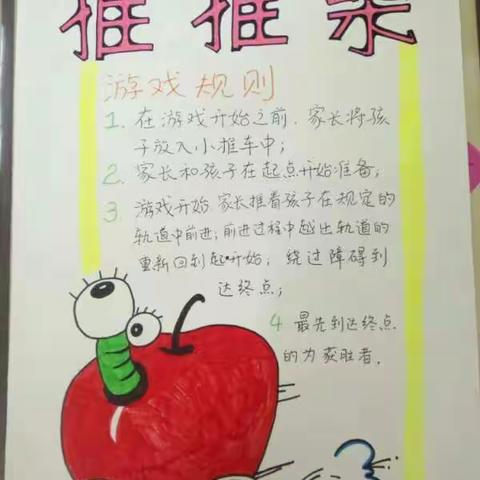 推推乐
游戏规则
1. 在游戏开始之前，家长将孩
子放入小推车中；
2. 家长和孩子在起点开始准备；
3 游戏开始，家长推着孩子在规定的
轨道中前进；前进过程中越出轨道的
重新回到起·开始；绕过障碍到
达终点；
4 最先到达终点
的为获胜者.